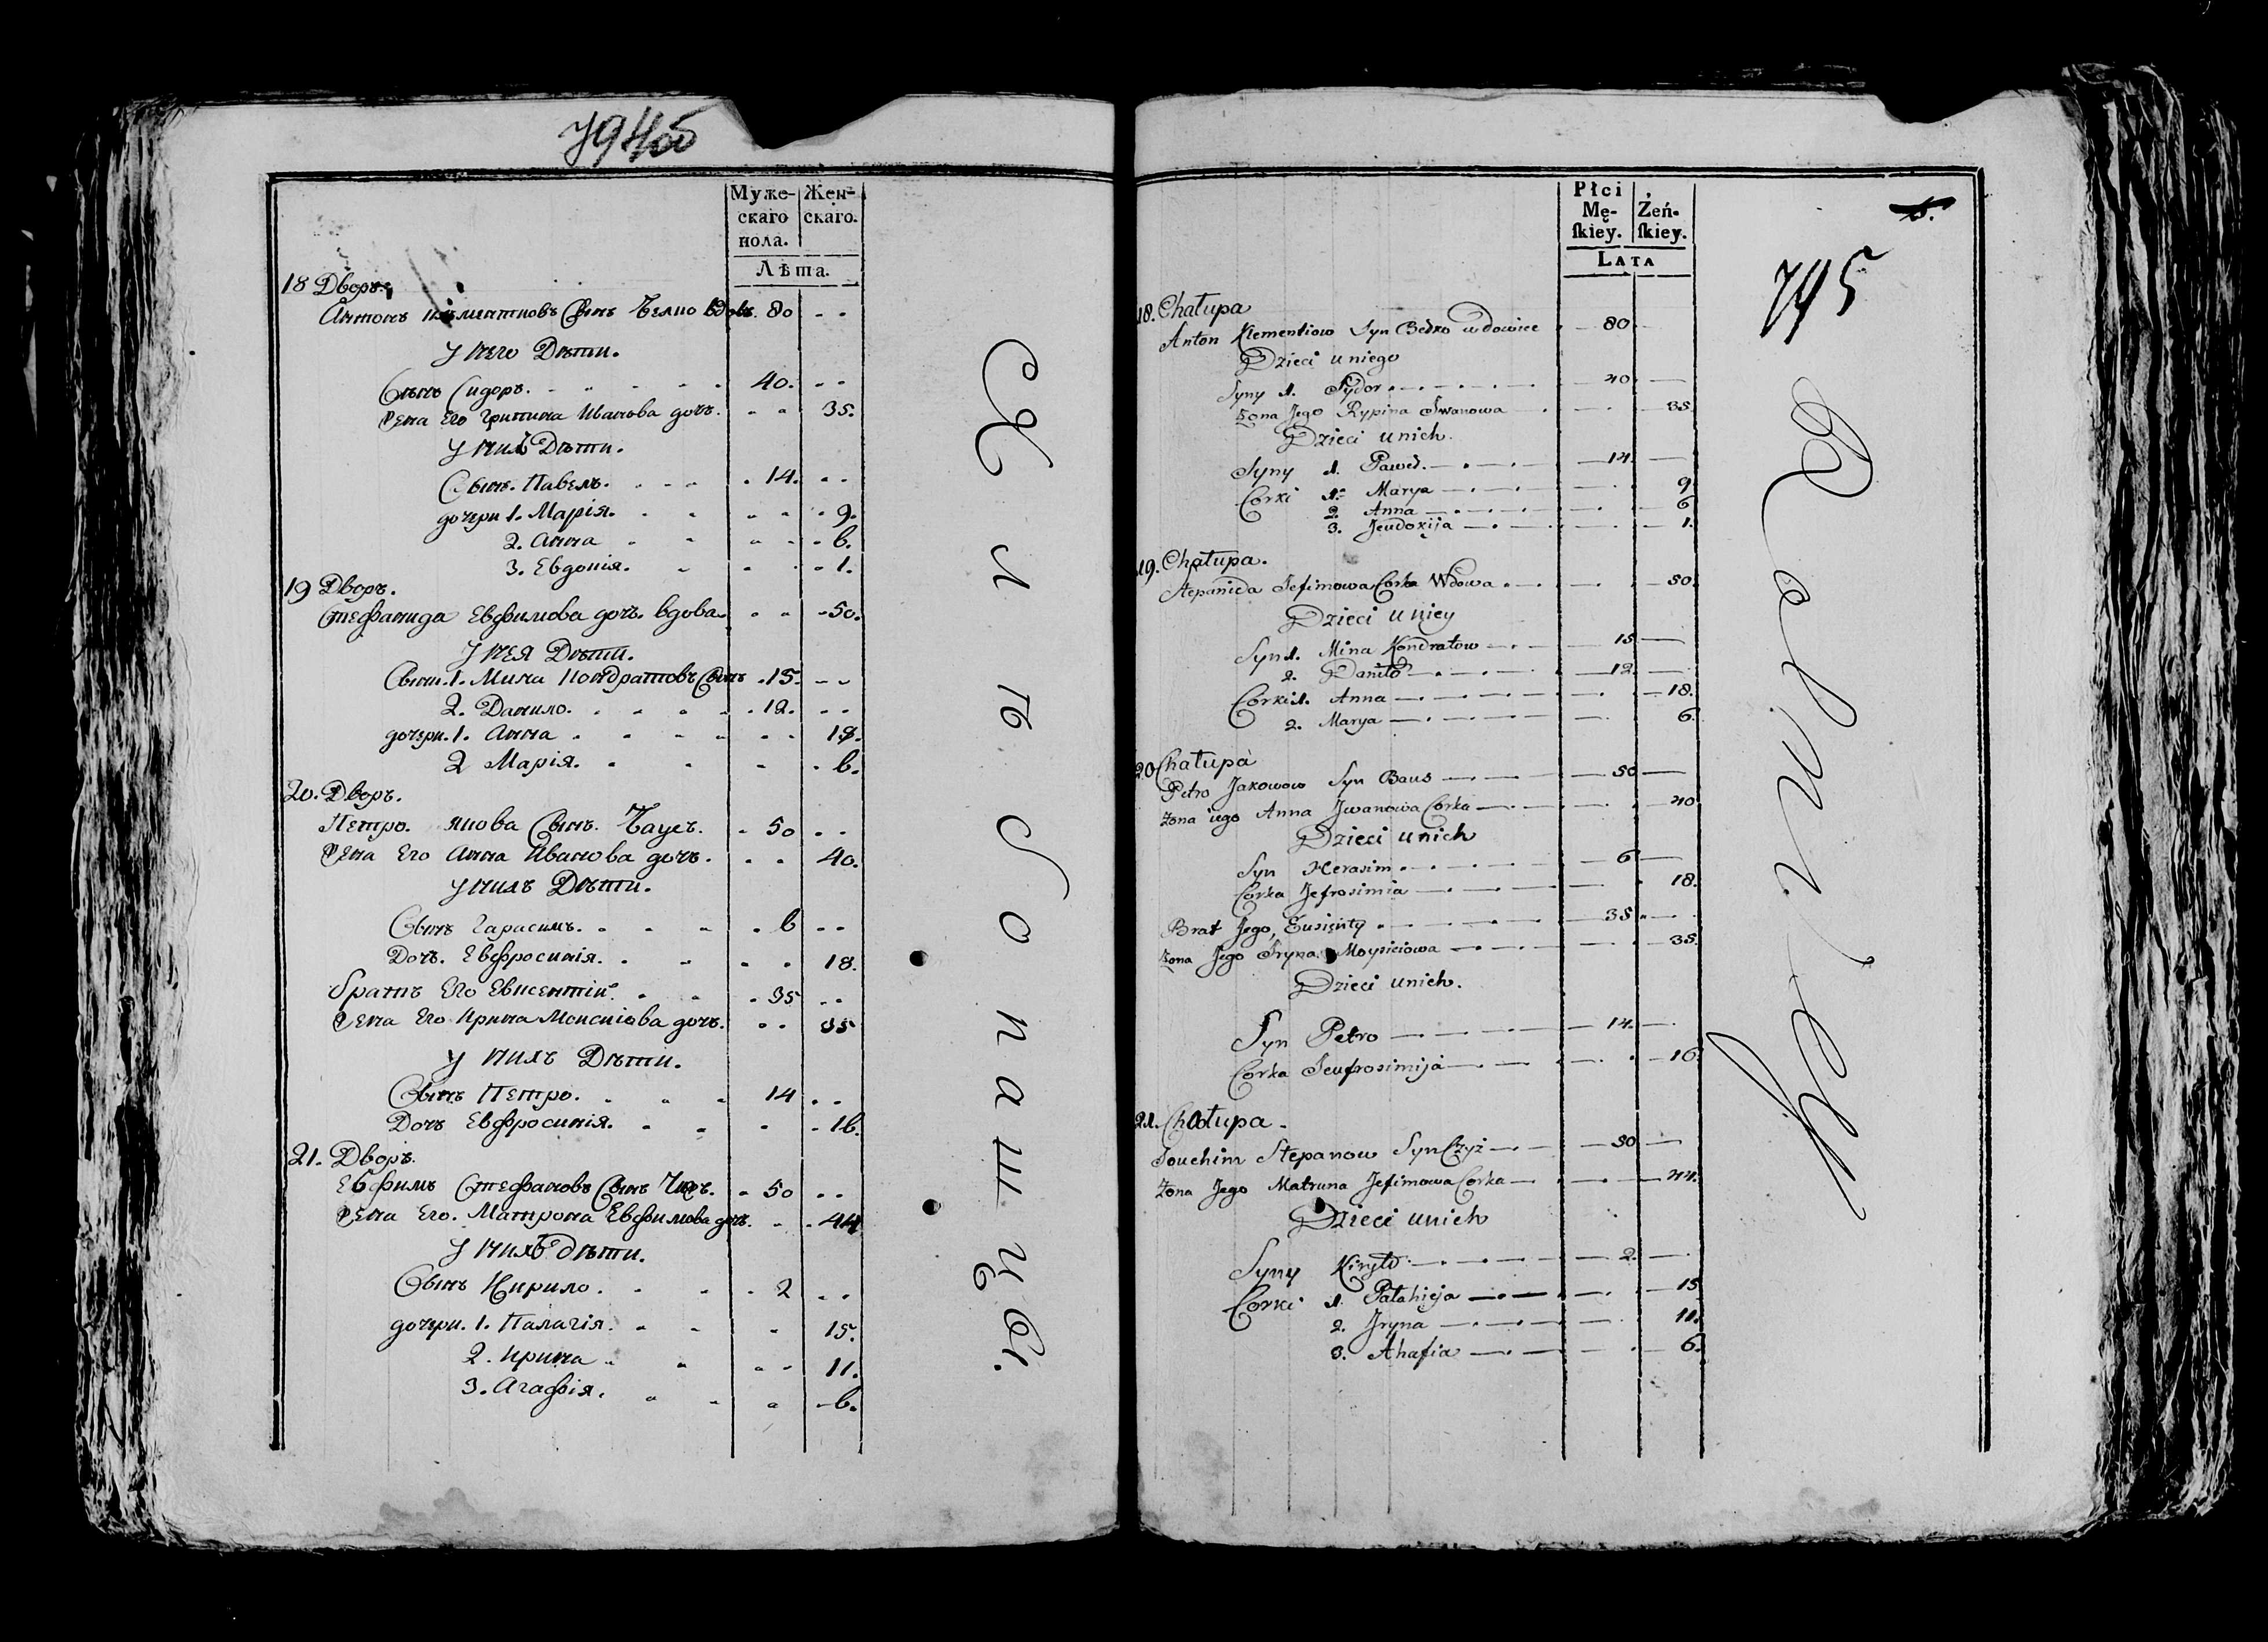 794об
Муже-
скаго
пола.
Жен-
скаго.
Лѣта.
18 Дворъ.
Антонъ Клементиовъ Сынъ Бедко вдовъ. 80
У Него Дѣти.
Сынъ Сидоръ. 40.
Жена Его Грипина Иванова дочь. 35.
У Нихъ Дѣти.
Сынъ. Павелъ. 14.
дочери 1. Марія. 9.
2. Анна 6.
3. Евдокія. 1.
19 Дворъ.
Стефанида Евфимова дочь. вдова. 50.
У Нея Дѣти.
Сынъ. 1. Мина Кондратовъ Сынъ 15.
2. Данило. 12.
дочери. 1. Анна 18.
2 Марія. 6.
20. Дворъ.
Петро. Якова Сынъ. Баусъ. 50
Жена Его Анна Иванова дочь. 40.
У Нихъ Дѣти.
Сынъ Гарасимъ. 6
Дочь. Евфросинія. 18.
братъ Его Евксентій. 35
Жена Его Ирина Моисиіова дочь. 35
У Нихъ Дѣти.
Сынъ Петро. 14
Дочь Евфросинія. 16.
21. Дворъ.
Евфимъ Стефановъ Сынъ Чижъ. 50
Жена Его. Матрона Евфимова дочь. 44
У Нихъ дѣти.
Сынъ Кирило. 2
дочери. 1. Палагія. 15.
2. Ирина 11.
3. Агафія. 6.
Płci
Mę-
skiey.
Żeń-
skiey.
LATA
795
18. Chałupa
Anton Klementiow Syn Bedko wdowiec 80
Dzieci u niego
Syny 1. Sydor 40
Żona Jego Rypina Iwanowa 35
Dzieci u nich.
Syny 1. Paweł. 14
Corki 1. Marya 9
2. Anna 6
3. Jeudoxija 1.
19. Chałupa.
Stepanida Jefimowa Corka Wdowa 50.
Dzieci u niey
Syn 1. Mina Kondratow 15
2. Daniło 12
Corki 1. Anna 18.
2. Marya 6.
20 Chałupa
Petro Jakowow Syn Baus 50
Żona iego Anna Jwanowa Corka 40
Dzieci u nich
Syn Herasim 6
Corka Jefrosimia 18.
Brat Jego, Eusienty 35
Żona Jego Iryna Moysieiowa 35.
Dzieci u nich.
Syn Petro 14.
Corka Jeufrosimija 16.
21. Chałupa.
Jouchim Stepanow Syn Czyż 50
Żona Jego Matruna Jefimowa Corka 44.
Dzieci u nich
Syny Kiryło 2.
Corki 1. Pałahieja 15
2. Jryna 11.
3. Ahafia 6.